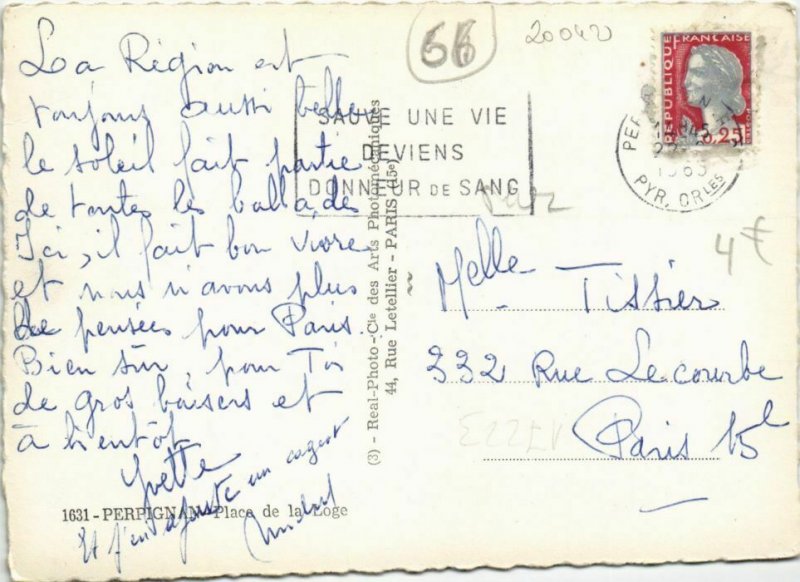 La Région est
toujours aussi belle
le soleil fait partie
de toutes les ballades
Ici, il fait bon vivre
et nous n'avons plus
de pensées pour Paris.
Bien sûr, pour Toi
de gros baisers et
à bientôt
Yvette
Et j'en ajoute un cageot
1631 - PERPIGNAN - Place de la Loge
(3) - Real-Photo - Cie des Arts Photomécaniques
44, Rue Letellier - PARIS (15e)
66
20042
SAUVE UNE VIE
DEVIENS
DONNEUR DE SANG
REPUBLIQUE FRANÇAISE
0,25
PYR. ORLES
4€
Melle Tissier
332 Rue Lecourbe
Paris 15e
17223